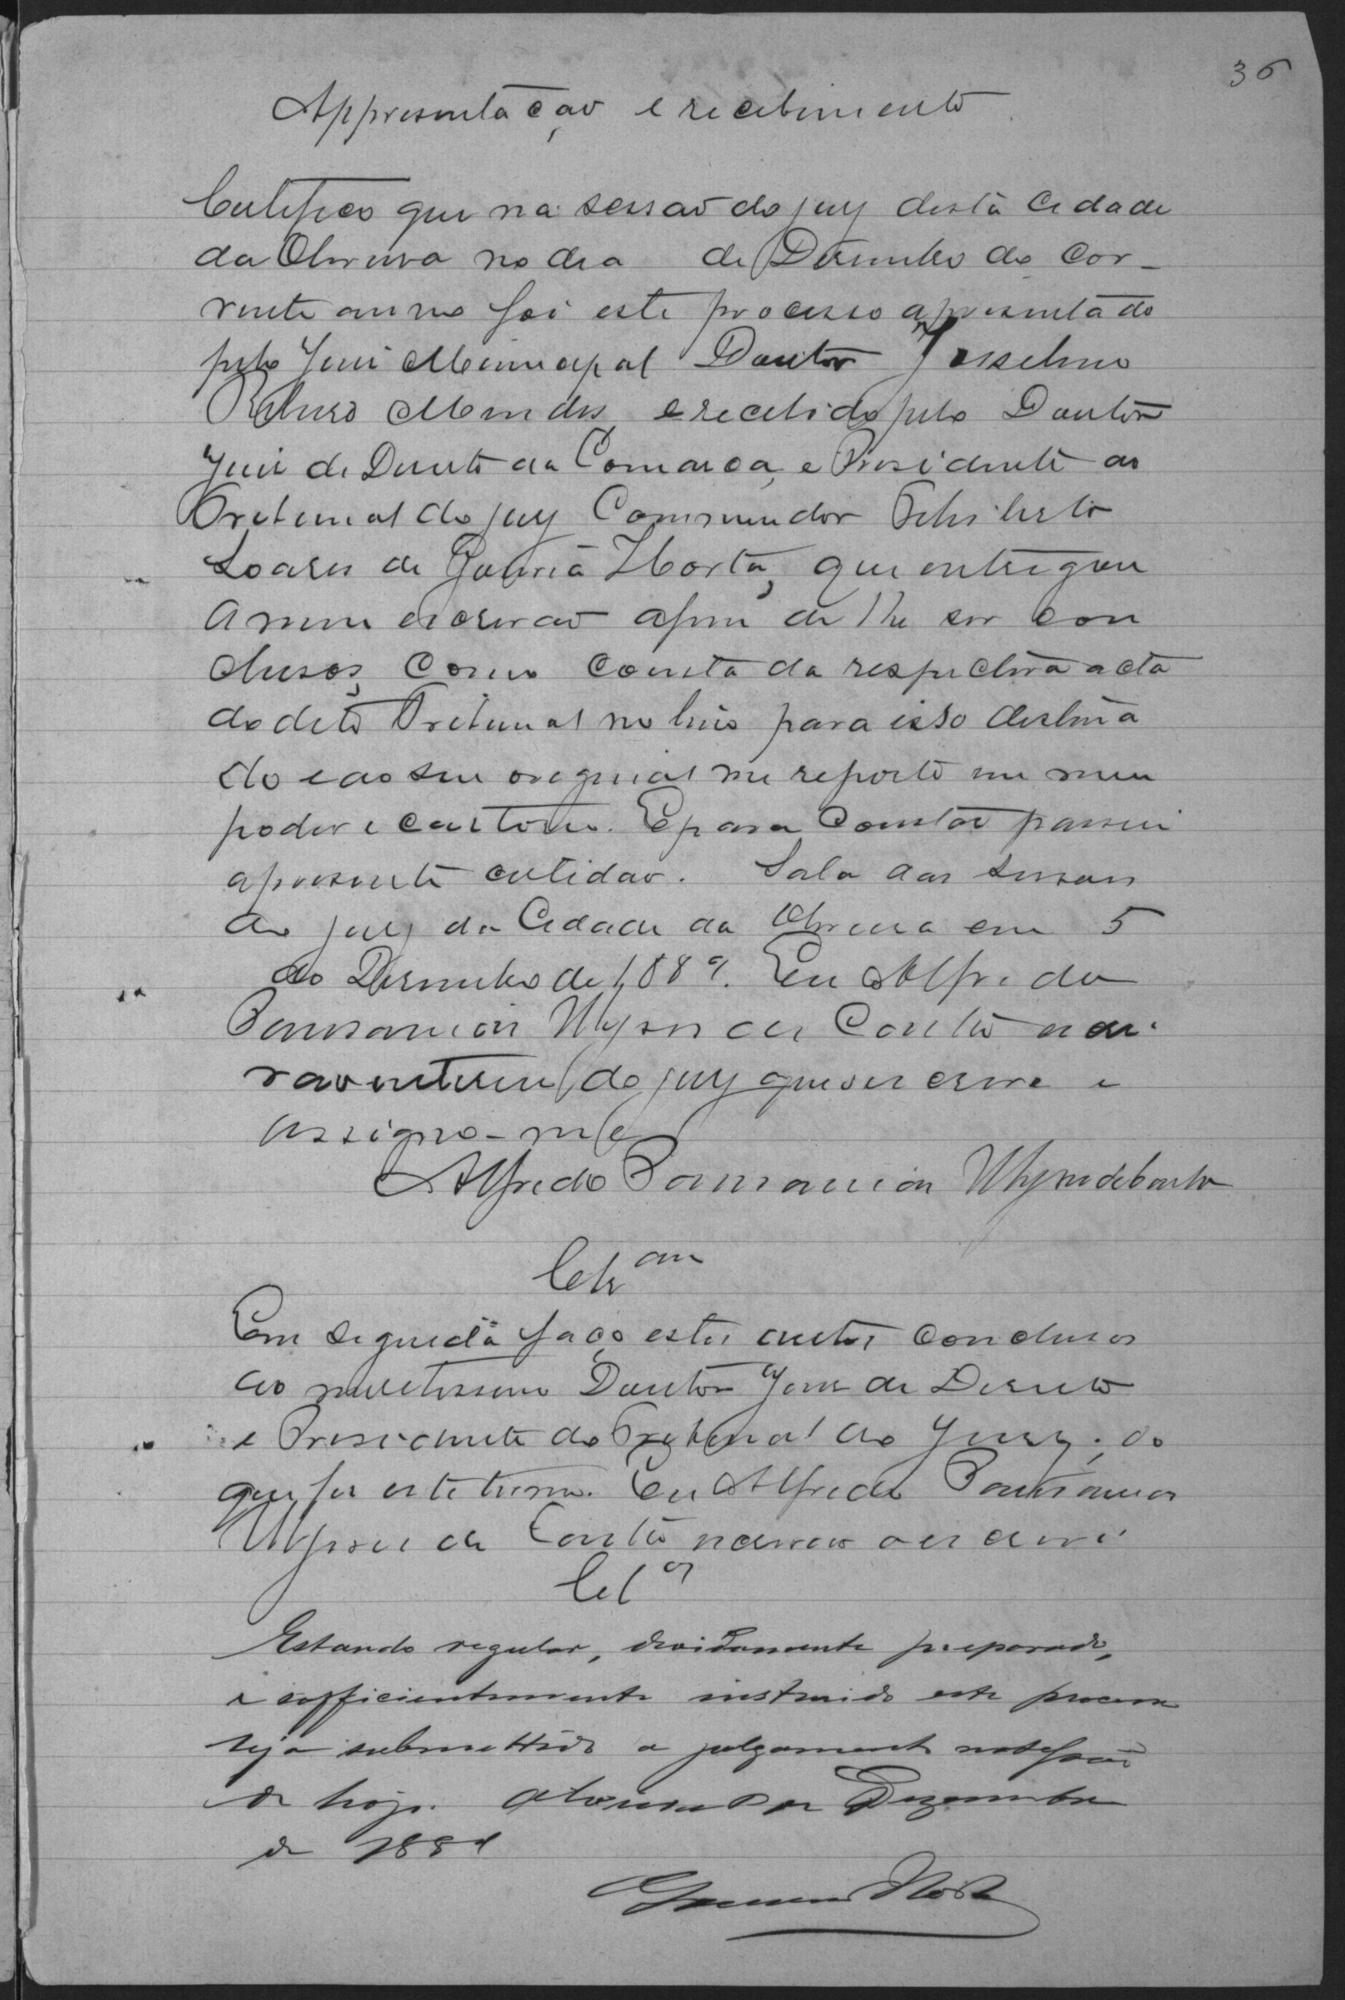 36
Appresentação e recebimento
Certifico que na sessão do jury desta cidade
da Oliveira no dia de Dezembro do cor-
rente anno foi este processo apresentado
pelo Juiz Municipal Doutor Joselino
Mendes, e recebido pelo Doutor
Juiz de Direito da Comarca, e Presidente do
Tribunal do jury Commendor
Soares de Gouvêa Horta, que entregou
a mim escrivão afim de lhe ser con
clusos, como consta da respectiva acta
do dito Tribunal no livro para isso destina
do e ao seu original me reporto em meu
poder e cartorio. E para constar passei
a presente certidão. Sala das sessões
do jury da Cidade da Oliveira em 5
de Dezembro de 1889. Eu Alfredo
Pausanias Ulysses de Couto escri
vão interino do jury que o escrevi e
assigno-me
Alfredo Pausanias Ulysses de Couto
Clsam
Em seguida faço estes autos conclusos
ao meretissimo Doutor Juiz de Direito
e Presidente do Tribunal do Jury; do
que fiz este termo. Eu Alfredo Pausanias
Ulysses de Couto escrivão o escrevi
Clos
Estando regular, devidamente preparado,
e sufficientemente instruido este processo
seja submettido a julgamento na sessão
de hoje. Oliveira 5 de Dezembro
de 1889
Gouvea Horta